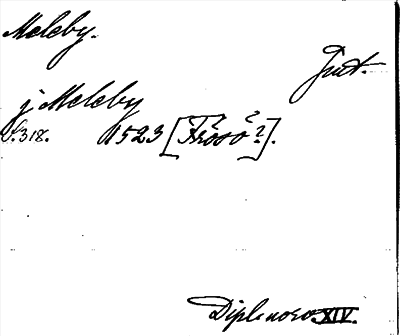 Meleby.
Jmt.
j Meleby
S. 318. 1523 [Frösö??].
Dipl. norv. XIV.